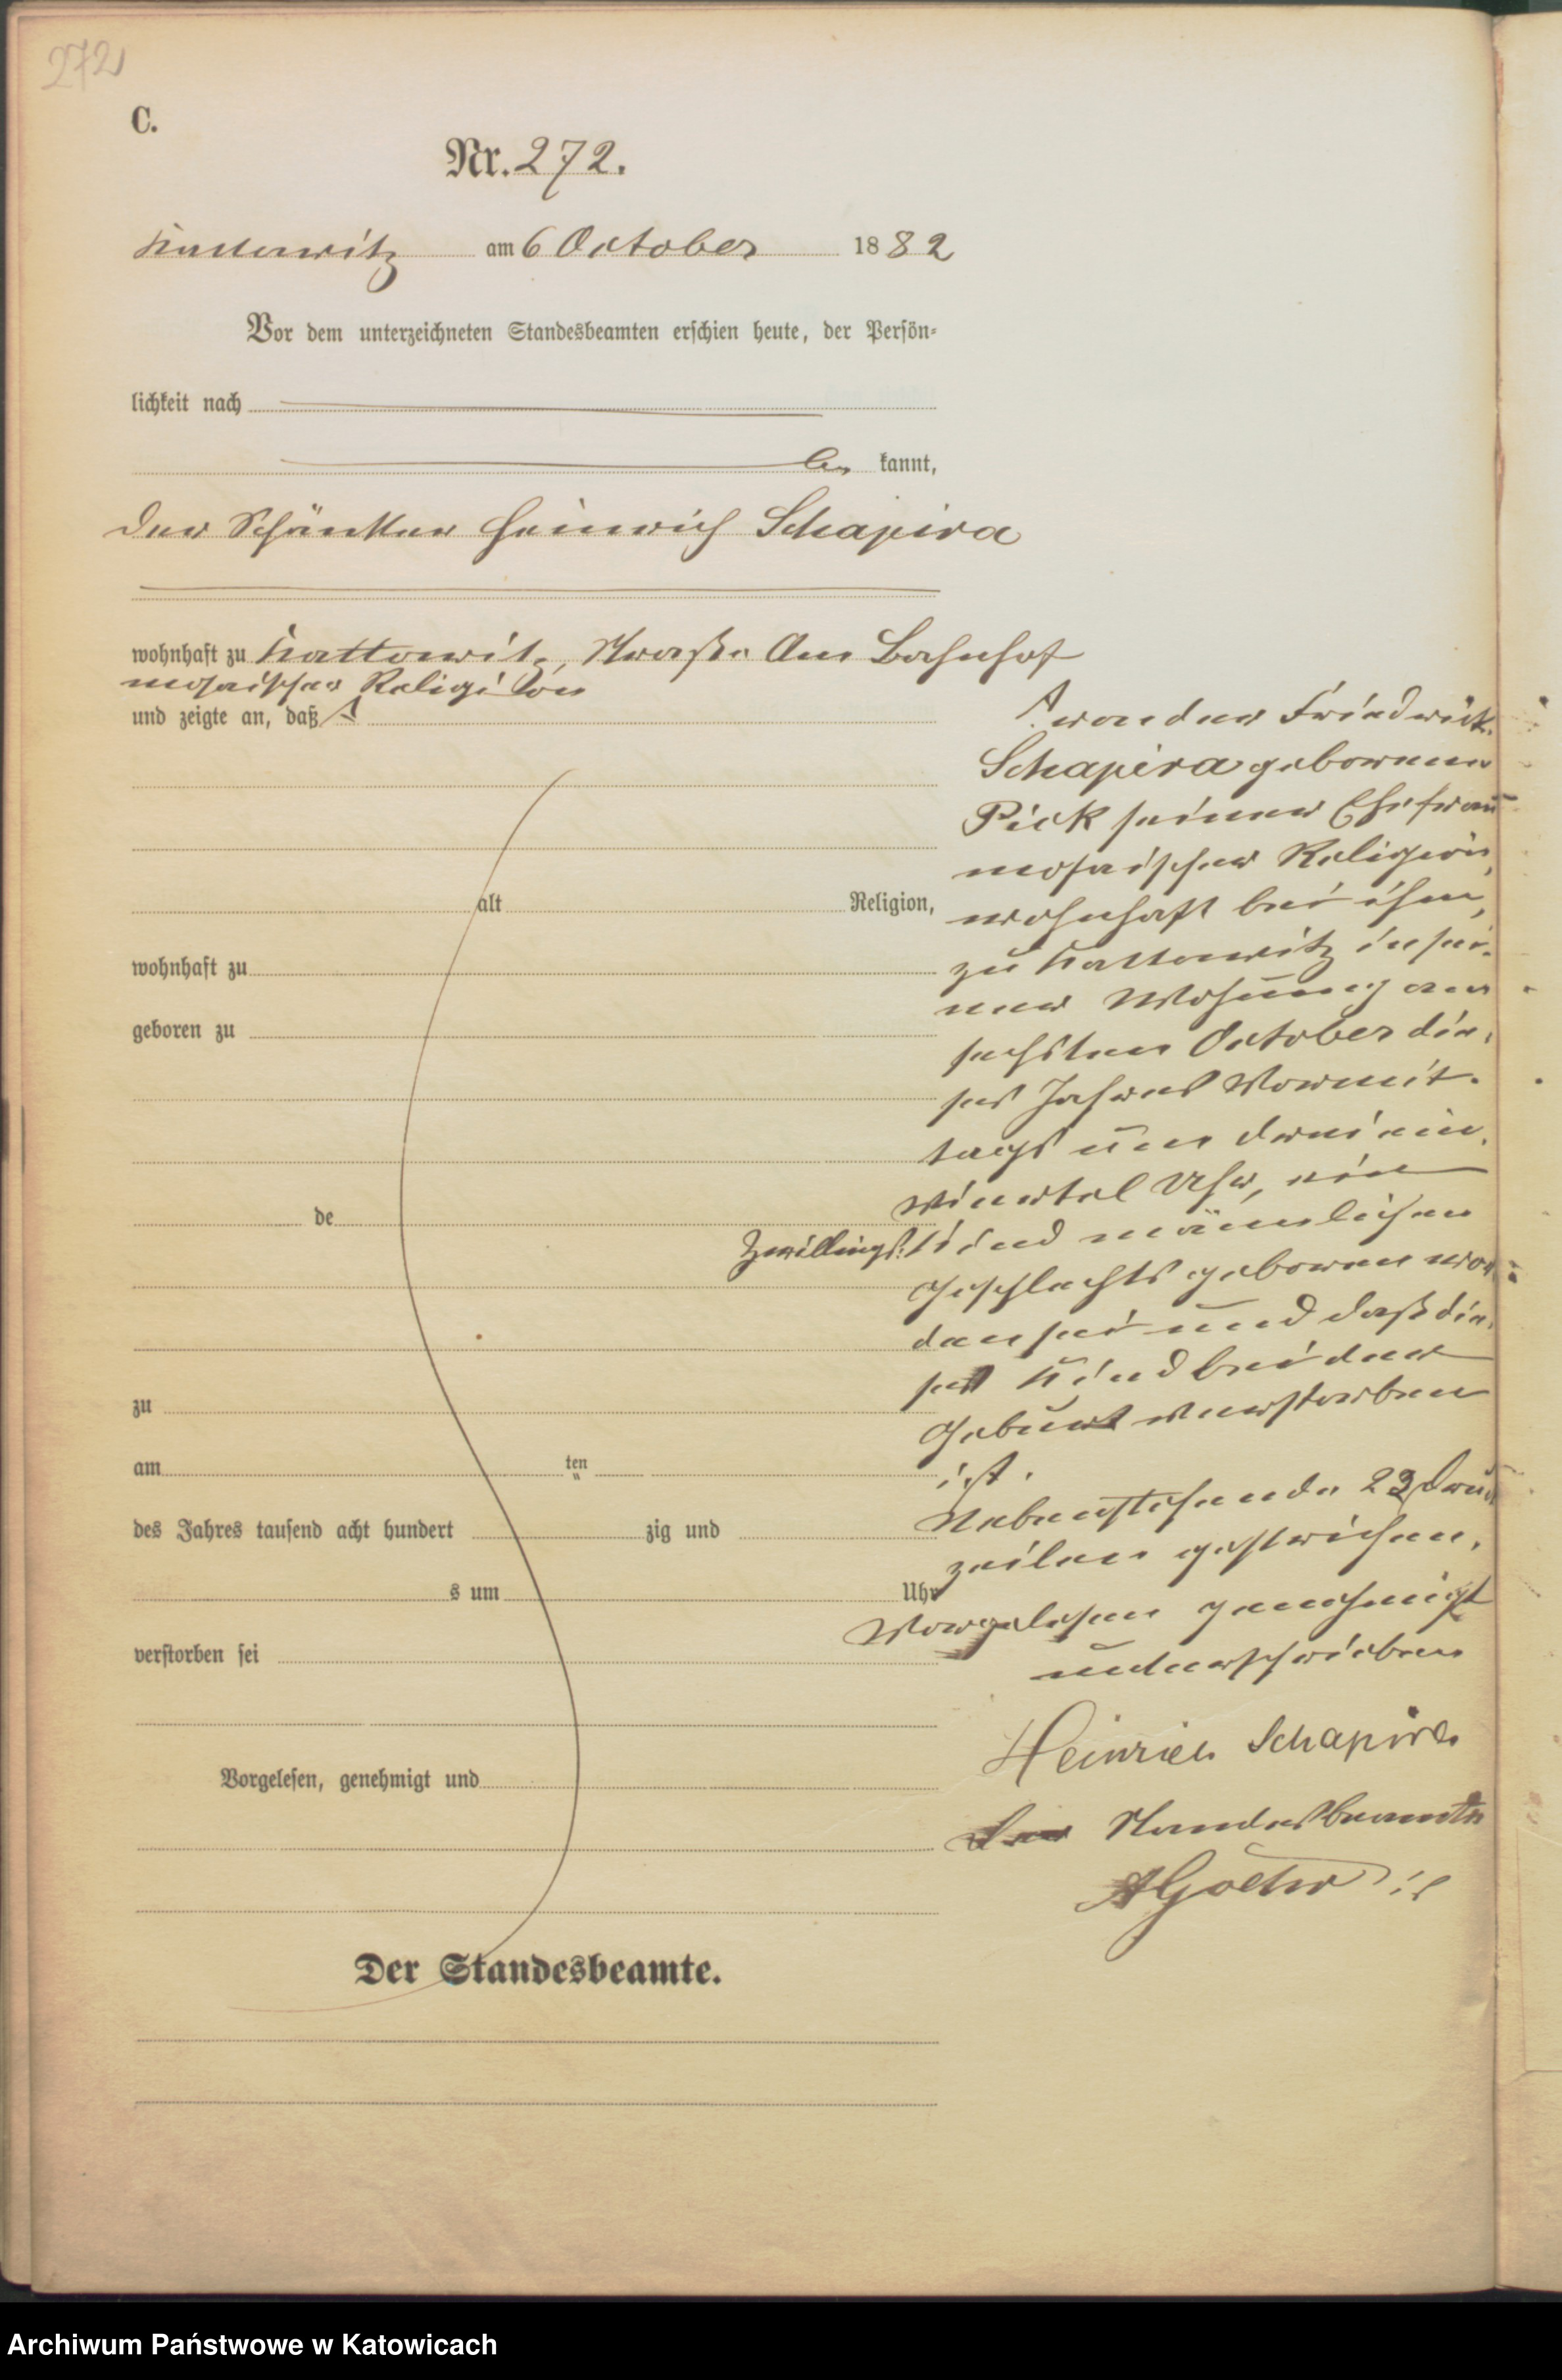 272
C.
Nr. 272.
Kattowitz am 6 October 1882
Vor dem unterzeichneten Standesbeamten erschien heute, der Persön-
lichkeit nach
be kannt,
der Schänker Heinrich Schapira
wohnhaft zu Kattowitz, Straße Am Bahnhof
mosaischer Religion
und zeigte an, daß
von der Friedrick
Schapira geborenen
Pick seiner Ehefrau
mosaischer Religion,
wohnhaft bei ihm,
zu Kattowitz in sei-
ner Wohnung am
sechsten October die-
ses Jahres Vormit-
tags um drei ein
viertel Uhr, ein
Zwillings-Kind männlichen
Geschlechts geboren wor-
den sei und daß die-
ses Kind bei der
Geburt verstorben
ist.
Nebenstehende 23 Druck
zeilen gestrichen.
Vorgelesen genehmigt
unterschrieben
Heinrich Schapira
Der Standesbeamte
alt Religion,
wohnhaft zu
geboren zu
de
zu
am ten
des Jahres tausend acht hundert zig und
s um Uhr
verstorben sei
Vorgelesen, genehmigt und
Der Standesbeamte.
Archiwum Państwowe w Katowicach